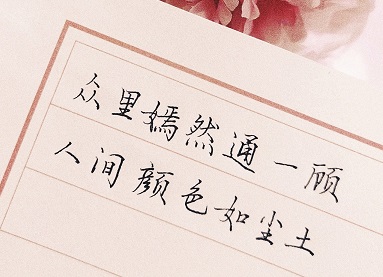 众里嫣然通一顾
人间颜色如尘土